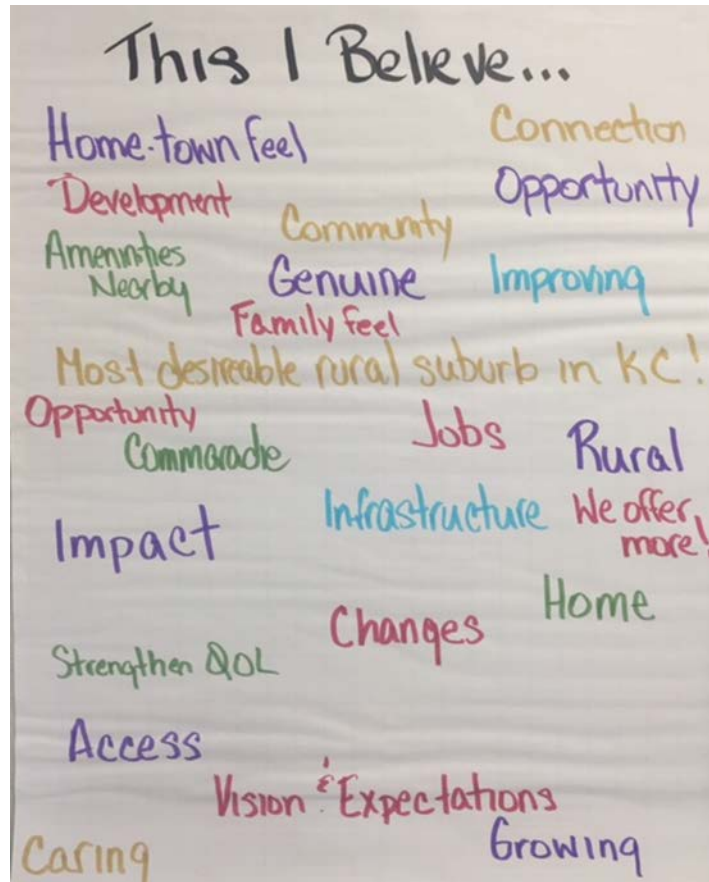 This I Believe...
Home-town feel
Connection
Development
Opportunity
Community
Ameninties
Nearby
Genuine
Improving
Family feel
Most desireable rural suburb in KC!
Opportunity
Jobs
Commaradie
Rural
Infrastructure
We offer
more!
Impact
Home
Changes
Strengthen QOL
Access
Vision & Expectations
Growing
Caring